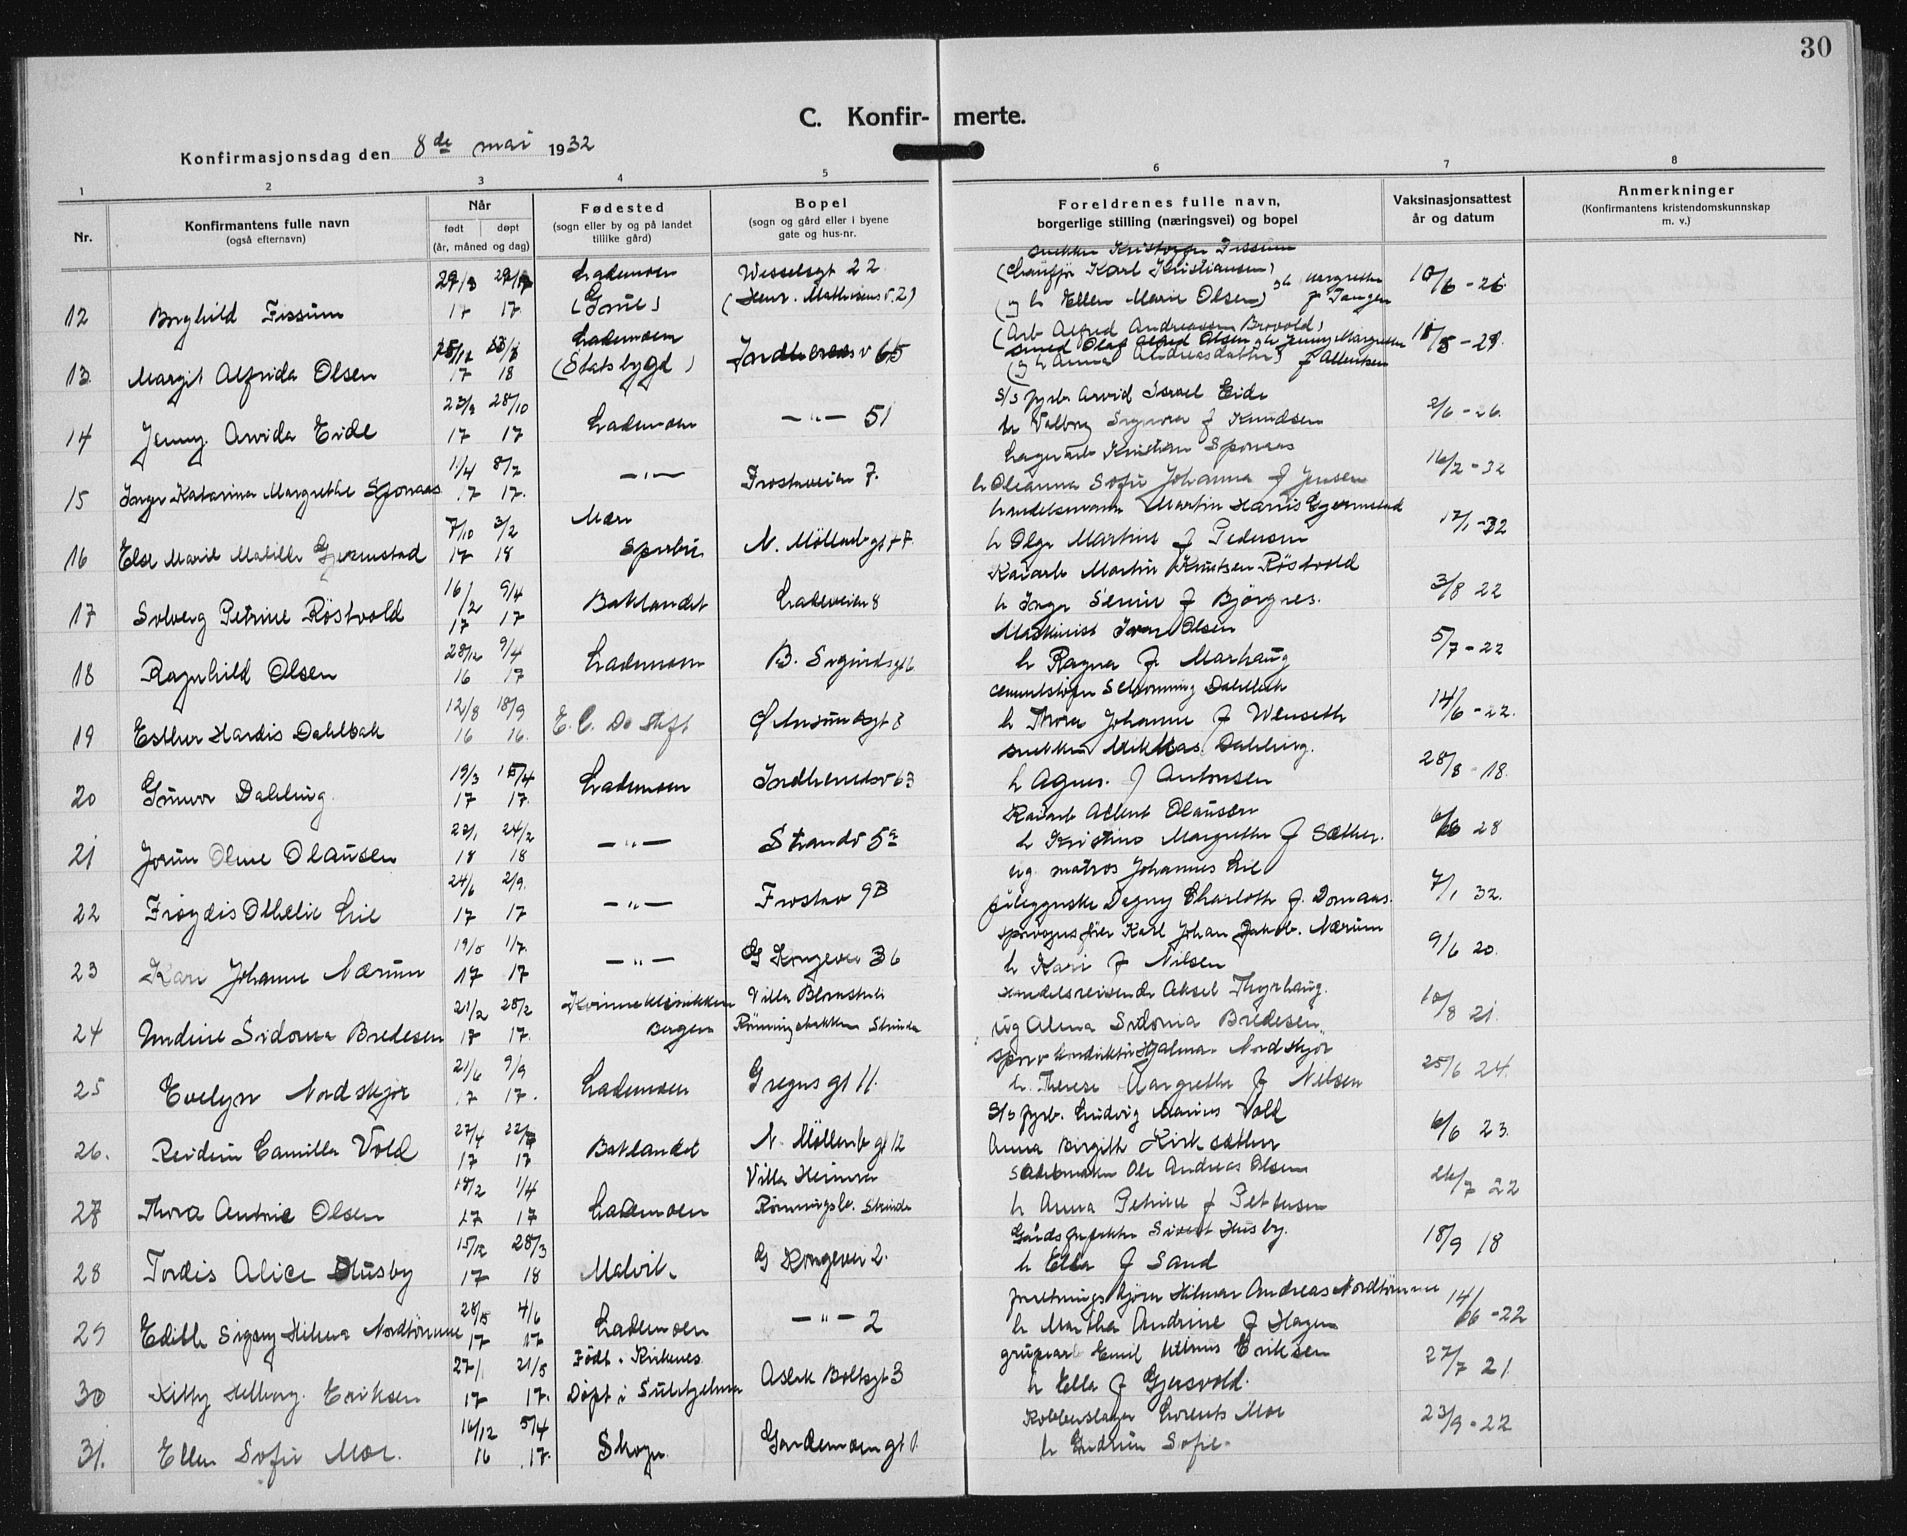 30
C. Konfir- merte.
Konfirmasjonsdag den 8de mai 1932
1 2 3 4 5 6 7 8
Nr.
Konfirmantens fulle navn
(også efternavn)
Når
født døpt
(år, måned og dag)
Fødested
(sogn eller by og på landet
tillike gård)
Bopel
(sogn og gård eller i byene
gate og hus-nr.
Foreldrenes fulle navn,
borgerlige stilling (næringsvei) og bopel
Vaksinasjonsattest
år og datum
Anmerkninger
(Konfirmantens kristendomskunnskap
m. v.)
snekker Kristoffer Fissum
Lademoen Wesselsgt 22 (Chauffør Karl Kristiansen)
12 Borghild Fissum 17 17 (Henr. Mathisens v. 2) (g h Ellen Marie Olsen) Margrethe f Tangen 10/6 - 26
Lademoen (Arb Alfred Andreassen Brovold)
smed Olaf Alfred Olsen Jenny Margrethe
13 Margit Alfrida Olsen 17 18 (Statsbygd) Indherredsv 65 (g h Anna Andreasdatter) f Albertsen
23/9 28/10 S/S fyrb Arvid Israel Eide
14 Jenny Arvida Eide 17 17 Lademoen — " — 51 h Valborg f Knudsen 2/6 - 26.
11/4 8/7 Lagerarb Kristian Sponaas
15 Inger Katarina Margrethe Sponaas 17 17. — " — Frostaveien 7. h Oleanna Sofie Johanna f Jensen 16/2 - 32
7/10 3/2 Mære Handelsmann Martin Gjermstad
16 Else Marie Matille Gjermstad 17 18 Sparbu N. Møllenbgt 47 h Olga Martine f Pedersen 12/1 - 32
16/2 9/4 Kaiarb Martin Knutsen Röstvold
17 Solveig Petrine Röstvold 17 17 Baklandet Ladeveien 8 h Inga Serine f Bjørgnes. 3/8 22
28/12 9/4 Maskinist Ivar Olsen
18 Ragnhild Olsen 16 17 Lademoen B. Sigurdsgt 6 h Ragna f. Marhaug 5/7 - 22
12/8 18/9 cementstøper Schonning Dahlbak
19 Esther Hardis Dahlbak 16 16. E. C. Dahls Stift Ø Amundsgt 8 h Thora Johanne f Wenseth 14/6 - 22.
19/3 15/4 snekker Mikkas Dahling.
20 Gunvor Dahling. 17 17. Lademoen Indherredsv 63 h Agnes. f Antonsen 28/8 - 18.
23/1 24/2 Kaiarb Albert Olaussen
21 Jorun Olme Olaussen 18 18 — " — Strandv 5a h Kristine Margrethe f Sæther. 28
24/6 2/9. ug. matros Johannes Lie
22 Frøydis Othelie Lie 17 17 — " — Frostav 9B pikeggenske Dagny Charlotte f. Domaas. 7/1 32.
19/5 1/7. sporvognsfører Karl Johan Jakob. Nærum
23 Kari Johanne Nærum 17 17 — " — G Kongevei 36 h Kari f Nilsen 9/6 20.
21/2 28/2 Kvinneklinikken Villa Blomstrtli Handelsreisende Aksel Thyrhaug.
24 Undine Sidonia Bredesen 17 17. Bergen Rønningsbakken Strinda ug Alma Sidonia Bredesen. 10/8 21.
21/6 9/9 Sporv konduktør Hjalmar Nordskjør
25 Evelyn Nordskjør 17 17. Lademoen Gregus gt 11. h. Therese Margrethe f Nilsen 25/6 24.
27/4 22/7 S/S fyrb. Ludvig Marius Vold
26. Reidun Camilla Vold 17 17 Baklandet N. Møllenb gt 12 Anna Birgith Kirksæther 6/6 23.
18/2 1/4 Villa Heimen Sadelmaker Ole Andreas Olsen
27 Thora Andrie Olsen 17 17 Lademoen Rønningsb. Strinda h Anna Petrine f Pettersen 26/7 22
15/12 28/3 Gårdsfor Sivert Husby.
28 Tordis Alice Husby 17 18 Malvik. G Kongevei 2. h Ella f Sand 18/9 18
4/6 forretningsbjører Hilmar Andreas Nordtømme
29 Edith Signy Hilma Nordtømme 17 17 Lademoen — " — 2 h Martha Andrine f Hagen 14/6 - 22
27/1 21/5 Født. Kirkenes grubearb Emil Eriksen
30 Kitty Helborg. Eriksen 17 17. Døpt i Sulitjelma Aslak Boltsgt 3 h Ella f Gjersvold. 27/7 21.
16/12 5/4 Kobberslager Lorents Moe
31. Ellen Sofie Moe. 16 17. Skogn Gardemoengt h Gudrun Sofie. 23/9 - 22